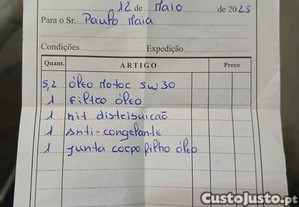 12 de Maio de 2025
Para o Sr. Paulo Maia
Condições Expedição
Quant. ARTIGO Preço
5,2 óleo motor 5w30
1 Filtro óleo
1 Kit distribuição
1 Anti-congelante
1 Junta corpo filho óleo
CustoJusto.pt